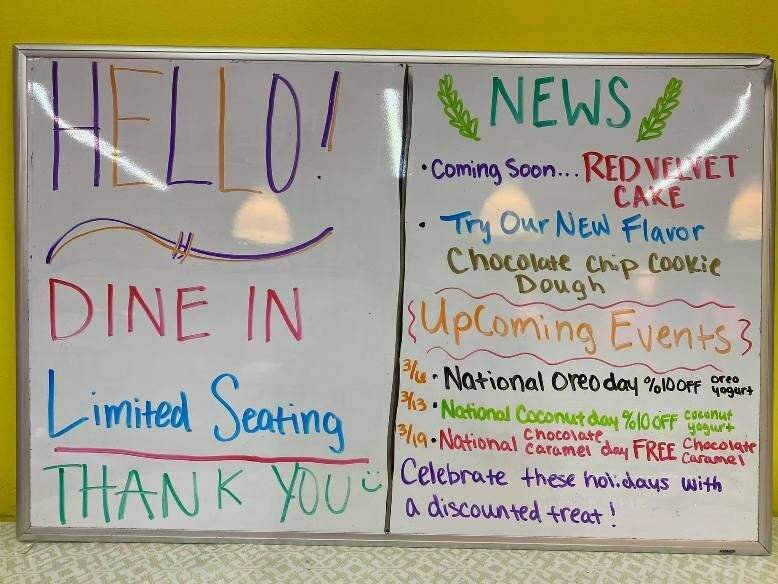 HELLO!
DINE IN
Limited Seating
THANK YOU
NEWS
• Coming Soon... RED VELVET
CAKE
• Try Our NEW Flavor
Chocolate Chip Cookie
Dough
{Upcoming Events}
3/6 • National Oreo day %10 OFF oreo yogurt
3/13 • National Coconut day %10 OFF coconut yogurt
3/19 • National Chocolate Caramel day FREE Chocolate Caramel
Celebrate these holidays with
a discounted treat!